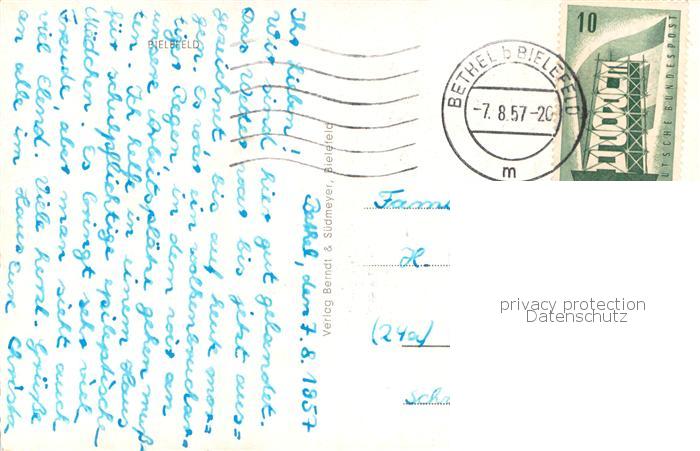 BIELEFELD
Bethel, den 7.8.1957
Ihr Lieben!
Wir sind hier gut gelandet.
Das Wetter war bis jetzt aus=
gezeichnet, bis auf heute mor=
gen. Es war ein wolkenbruchar=
tiger Regen, in dem wir an
unsere Arbeitsplätze gehen muß=
ten. Ich helfe in einem Haus
für schulpflichtige epileptische
Mädchen. Es bringt sehr viel
Freude, aber man sieht auch
viel Elend. Viele herzl. Grüße
an alle im Haus Eure Christa
Verlag Berndt & Südmeyer, Bielefeld
BETHEL b BIELEFELD
-7.8.57-20
m
10
UTSCHE BUNDESPOST
Fami
H.
(24a)
Sch
privacy protection
Datenschutz